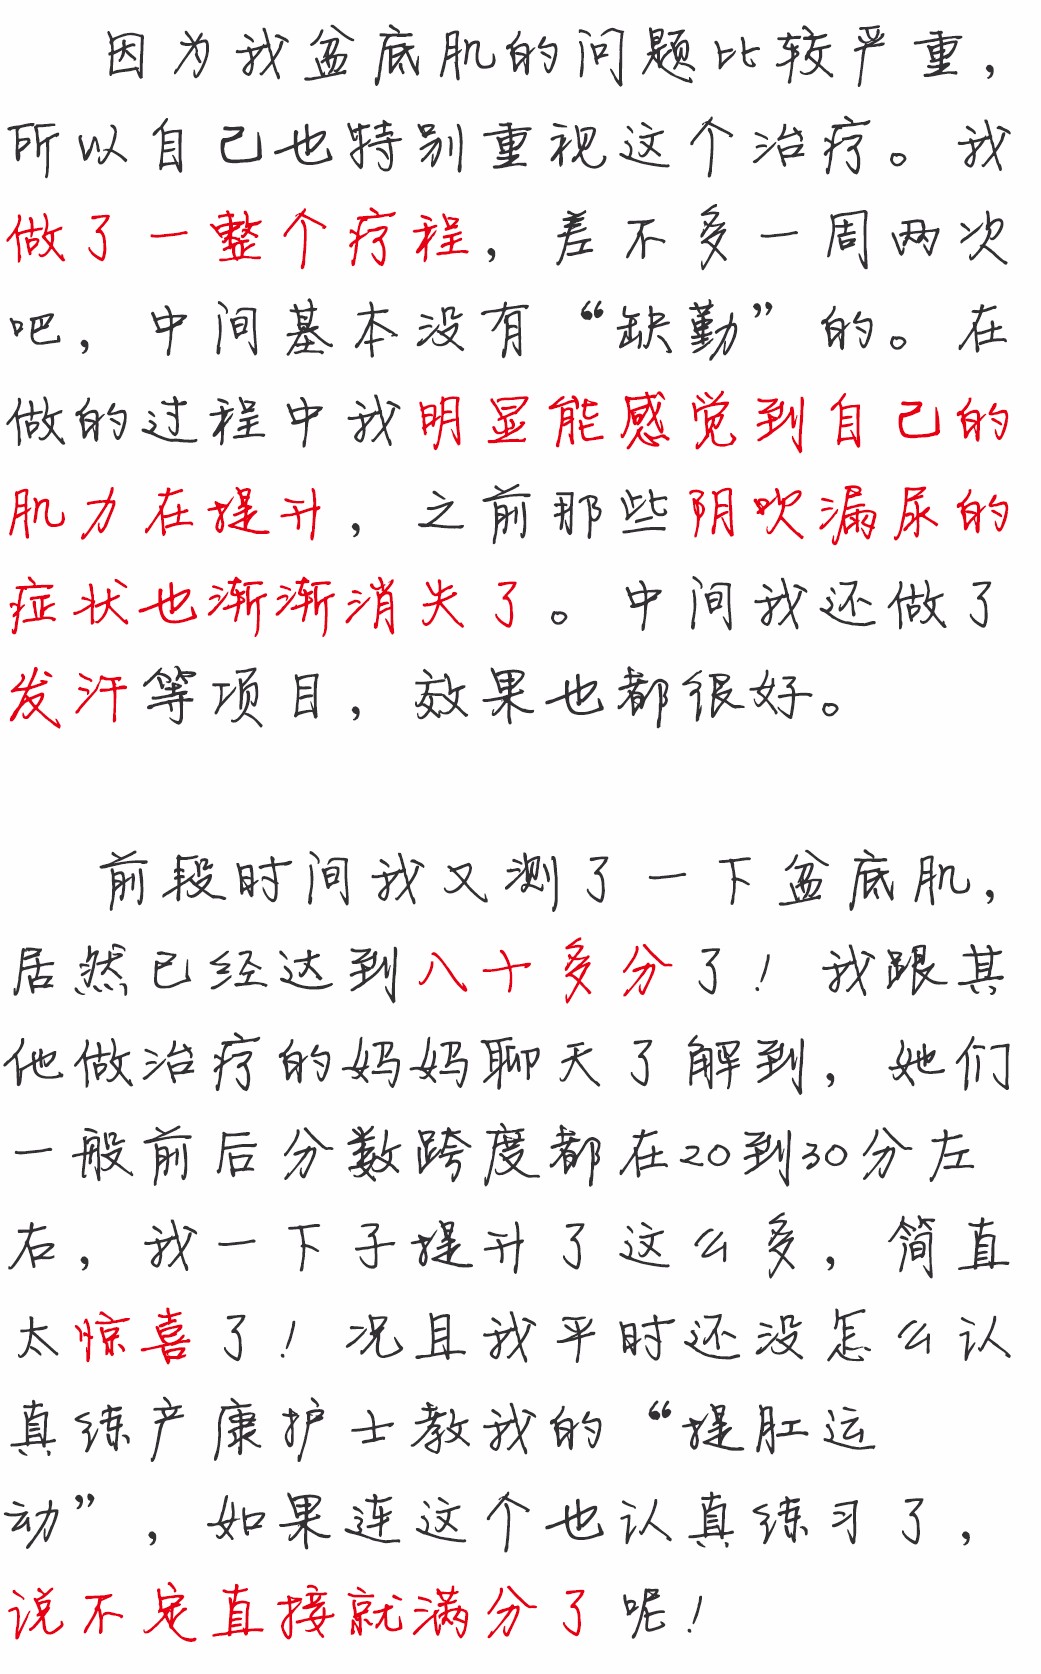 因为我盆底肌的问题比较严重，
所以自己也特别重视这个治疗。我
做了一整个疗程，差不多一周两次
吧，中间基本没有“缺勤”的。在
做的过程中我明显能感觉到自己的
肌力在提升，之前那些阴吹漏尿的
症状也渐渐消失了。中间我还做了
发汗等项目，效果也都很好。
前段时间我又测了一下盆底肌，
居然已经达到八十多分了！我跟其
他做治疗的妈妈聊天了解到，她们
一般前后分数跨度都在20到30分左
右，我一下子提升了这么多，简直
太惊喜了！况且我平时还没怎么认
真练产康护士教我的“提肛运
动”，如果连这个也认真练习了，
说不定直接就满分了呢！